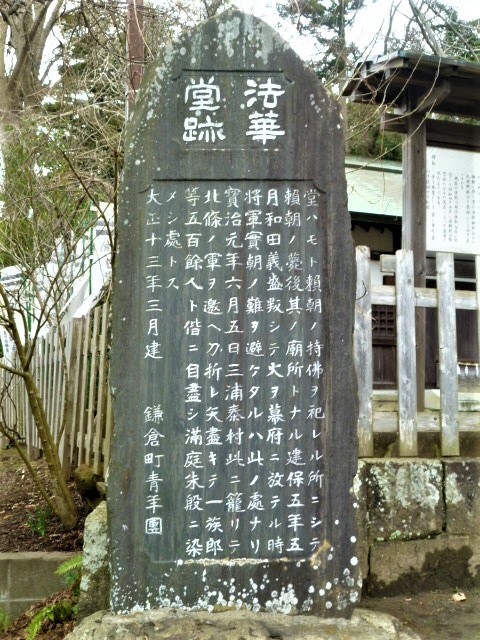 法華
堂跡
堂ハモト頼朝ノ持佛ヲ祀レル所ニシテ
頼朝ノ薨後其ノ廟所トナル建保五年五
月和田義盛叛シテ火ヲ幕府ニ放テル時
將軍實朝ノ難ヲ避ケタルハ此ノ處ナリ
寳治元年六月五日三浦泰村此ニ籠リテ
北條ノ軍ヲ邀ヘ刀折レ矢盡キテ一族郎
等五百餘人ト偕ニ自盡シ滿庭朱殷ニ染
メシ處トス
大正十三年三月建 鎌倉町青年團